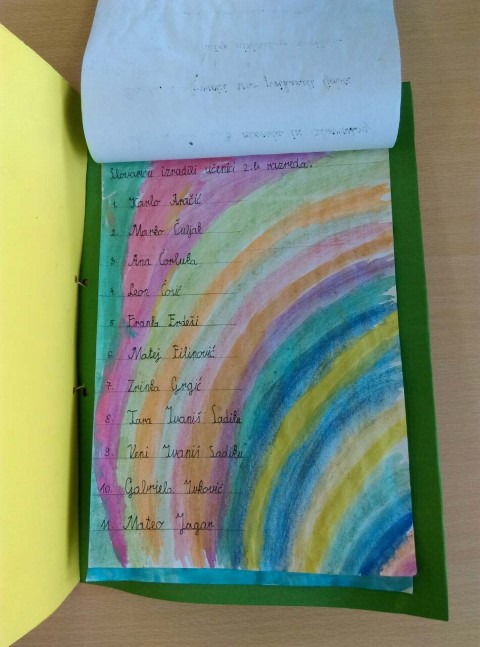 Slovaricu izradili učenici 2.b razreda.
1. Karlo Aračić
2. Marko Čuljak
3. Ana Čorluka
4. Leon Ćosić
5. Franka Erdeši
6. Matej Filipović
7. Zrinka Grgić
8. Tara Ivaniš Sadiku
9. Veni Ivaniš Sadiku
10. Gabriela Ivković
11. Mateo Jagar